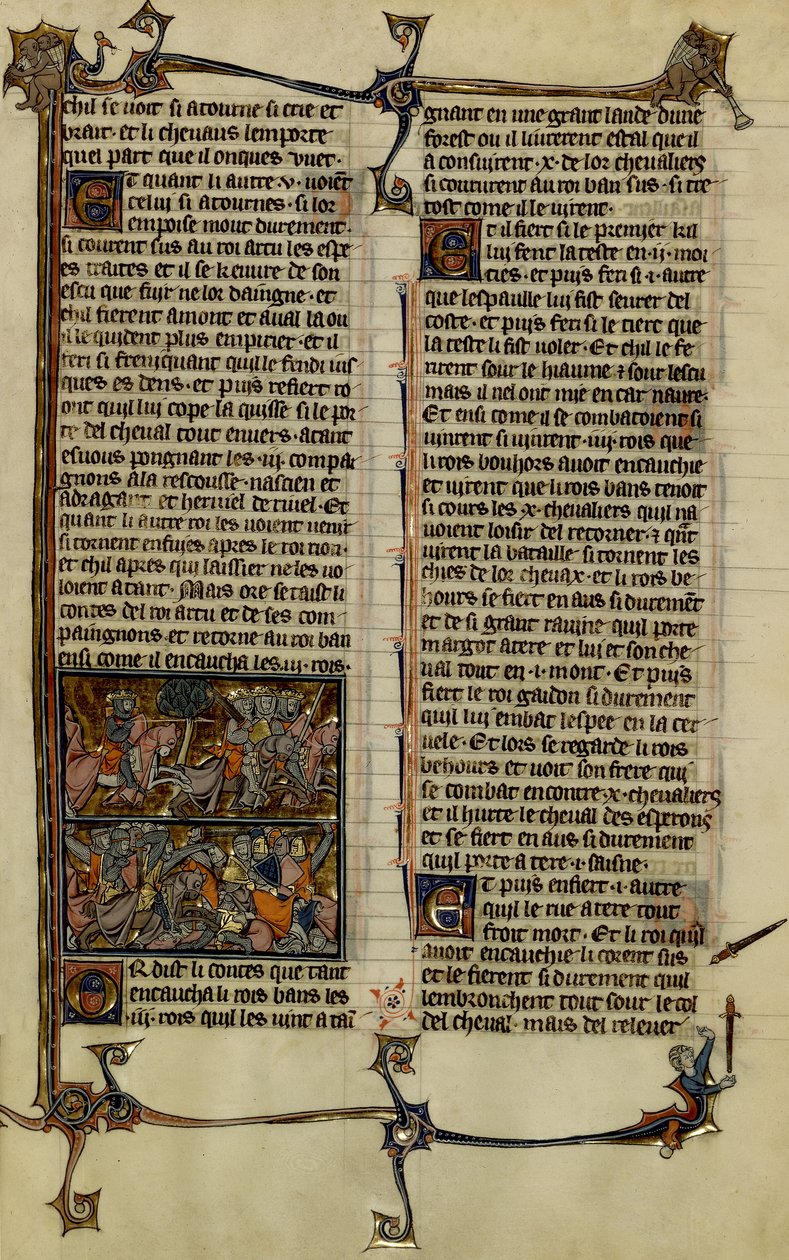 chil se uoit si atourne si crie et
brait · et li cheuaus lemporte
quel part que il onques vuet ·
Et quant li autre · v · uoiẽt
celui si atournes · si lor
empoise mout durement ·
si courent sus au roi artu les espe
es traites et il se keuure de son
escu que fuir ne lor daingne · et
chil fierent amont et aual la ou
il le quident plus empirier · et il
feri si freniquant quil le fendi uis
ques es dens · et puis refiert ro
ont quil lui cope la quisse si le por
te del cheual tout enuers · atant
es uous pongnant les · iij · compai
gnons a la rescousse · nascien et
adragant et heruiel de riuel · Et
quant li autre roi les uoient uenir
si tornent en fuies apres le roi rion ·
et chil apres qui laissier ne les uo
loient atant · Mais ore se taist li
contes del roi artu et de ses com
paingnons et retorne au roi ban
ensi come il encaucha les · iij · rois ·
Or dist li contes que tant
encaucha li rois bans les
· iij · rois quil les uint atai
gnant en une grant lande dune
forest ou il liurerent estal que il
a consuirent · x · de lor cheualiers
si coururent au roi ban sus · si tre
tost come il le uirent ·
Et il fiert si le premier kil
lui fent la teste en · ij · moi
ties · et puis feri si · i · autre
que lespaulle lui fist seurer del
coste · et puis feri si le tierc que
la teste li fist uoler · Et chil le fe
rirent sour le hiaume ⁊ sour lescu
mais il nel ont mie en car naure ·
Et ensi come il se combatoient si
uinrent si uinrent · iiij · rois que
li rois bouhors auoit encauchie
et uirent que li rois bans tenoit
si cours les · x · cheualiers quil na
uoient loisir del retorner · ⁊ qñt
uirent la bataille si tornent les
chies de lor cheuax · et li rois be
hours se fiert en aus si duremẽt
et de si grant rauine quil porte
margot a tere et lui et son che
ual tout en · i · mont · Et puis
fiert le roi gaidon si durement
quil lui embat lespee en la cer
uele · Et lors se regarde li rois
behours et uoit son frere qui
se combat encontre · x · cheualiers
et il hurte le cheual des esperons
et se fiert en aus si durement
quil porte a tere · i · saisne ·
Et puis en fiert · i · autre
quil le rue a tere tout
froit mort · Et li roi quil
auoit encauchie li corent sus
et le fierent si durement quil
lembronchent tout sour le col
del cheual · mais del releuer